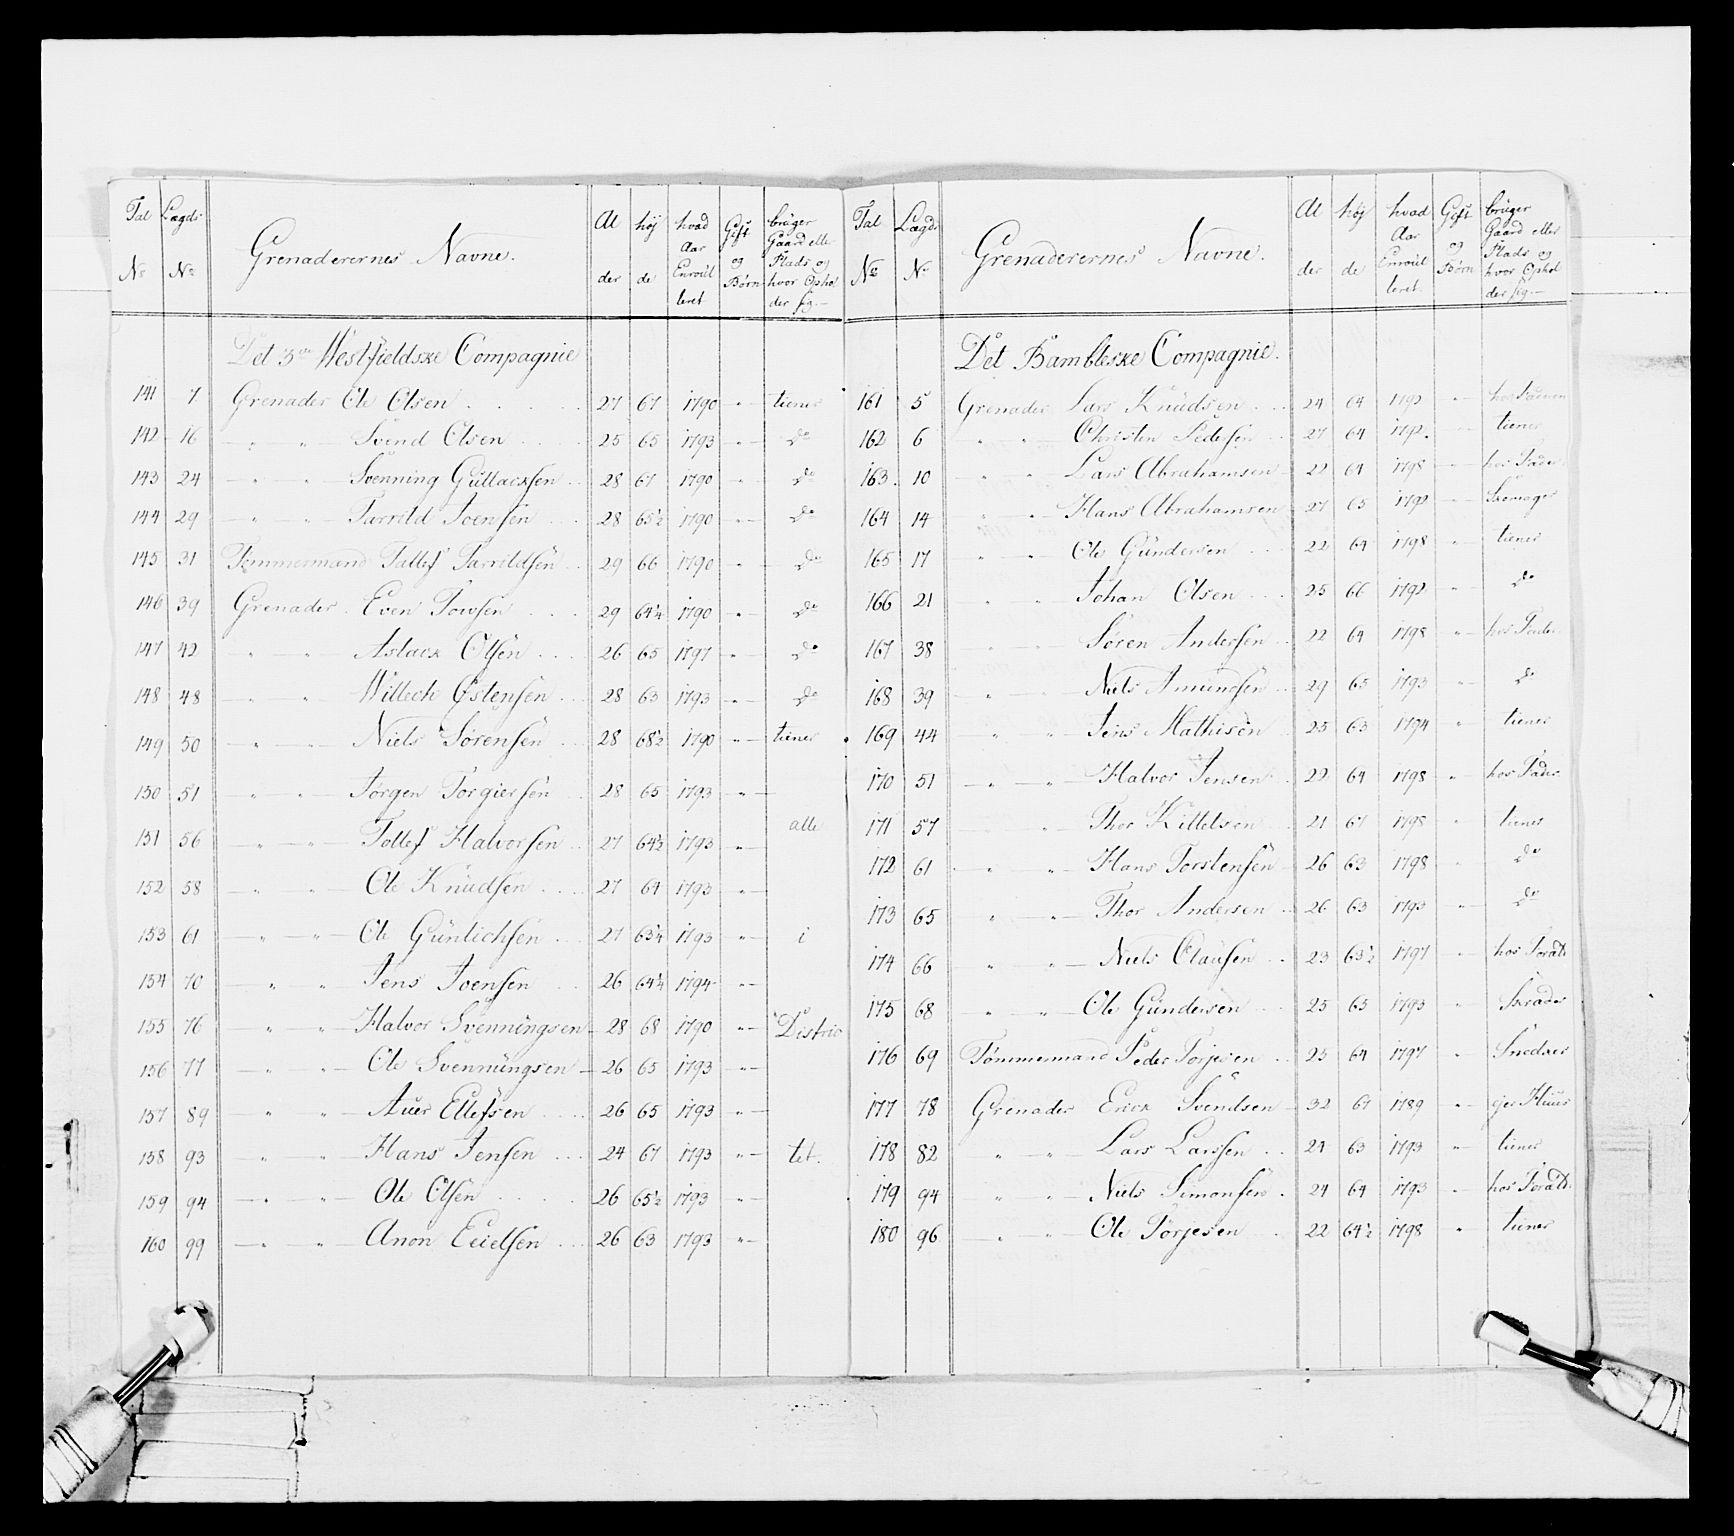 Tal No Lægds No Grenaderernes Navne. Al der høj de hvad Aar Enroulleret Gift og Børn brüger Gaard eller Plads og hvor Opholder sig.
Det 3de Westfieldske Compagnie
141 7 Grenader Ole Olsen 27 67 1790 " tiener
142 16 " " Svend Olsen 25 65 1793 " do
143 24 " " Svenning Gullacksen 28 67 1790 " do
144 29 " " Tarrild Joensen 28 65½ 1790 " do
145 31 Tømmermand Tallef Tarrildsen 29 66 1790 " do
146 39 Grenader Even 29 64¼ 1790 " do
147 42 " " Aslack Olsen 26 65 1797 " do
148 48 " " Willech Østensen 28 63 1793 " do
149 50 " " Niels Sørensen 28 68½ 1790 " tiener
150 51 " " Jørgen Torgiersen 28 65 1793 "
151 56 " " Tollef Halvorsen 27 64½ 1793 " alle
152 58 " " Ole Knüdsen 27 64 1793 "
153 61 " " Ole Günlichsen 27 63¼ 1793 " i
154 70 " " Jens Joensen 26 64¼ 1794 "
155 76 " " Halvor Svenningsen 28 68 1790 " Distric
156 77 " " Ole Svenningsen 26 65 1793 "
157 89 " " Auer Ellefsen 26 65 1793 "
158 93 " " Hans Jensen 24 67 1793 " tet.
159 94 " " Ole Olsen 26 65½ 1793 "
160 99 " " Anon 26 63 1793 "
Tal No Lægds No Grenaderernes Navne. Al der høj de hvad Aar Enroulleret Gift og Børn brüger Gaard eller Plads og hvor Opholder sig.
Det Bambleske Compagnie.
161 5 Grenader Lars Knüdsen 24 64 1792 "
162 6 " " Christen Pedersen 27 64 1792 " tiener
163 10 " " Lars Abrahamsen 22 64 1798 " hos Fader
164 14 " " Hans Abrahamsen 27 65 1792 " Skomager
165 17 " " Ole Gündersen 22 64 1798 " tiener
166 21 " " Johan Olsen 25 66 1792 " do
167 38 " " Søren Andersen 22 64 1798 " hos Fader
168 39 " " Niels Amundsen 29 65 1793 " do
169 44 " " Jens Mathisen 25 63 1794 " tiener
170 51 " " Halvor Jensen 22 64 1798 " hos Fader
171 57 " " Thor Kittelsen 21 67 1798 " tiener
172 61 " " Hans Torstensen 26 63 1798 " do
173 65 " " Thor Andersen 26 63 1793 " do
174 66 " " Niels Clausen 23 63½ 1797 " hos Forældr
175 68 " " Ole Gündersen 25 65 1793 " Skrader
176 69 Tømmermand Peder Torjesen 25 64 1797 " Snedker
177 78 Grenader Erick Svendsen 32 67 1789 " ejer Huus
178 82 " " Lars Larssen 24 63 1793 " tiener
179 94 " " Niels Simonsen 24 64 1793 " hos Forældr.
180 96 " " Ole Torjesen 22 64½ 1798 " tiener